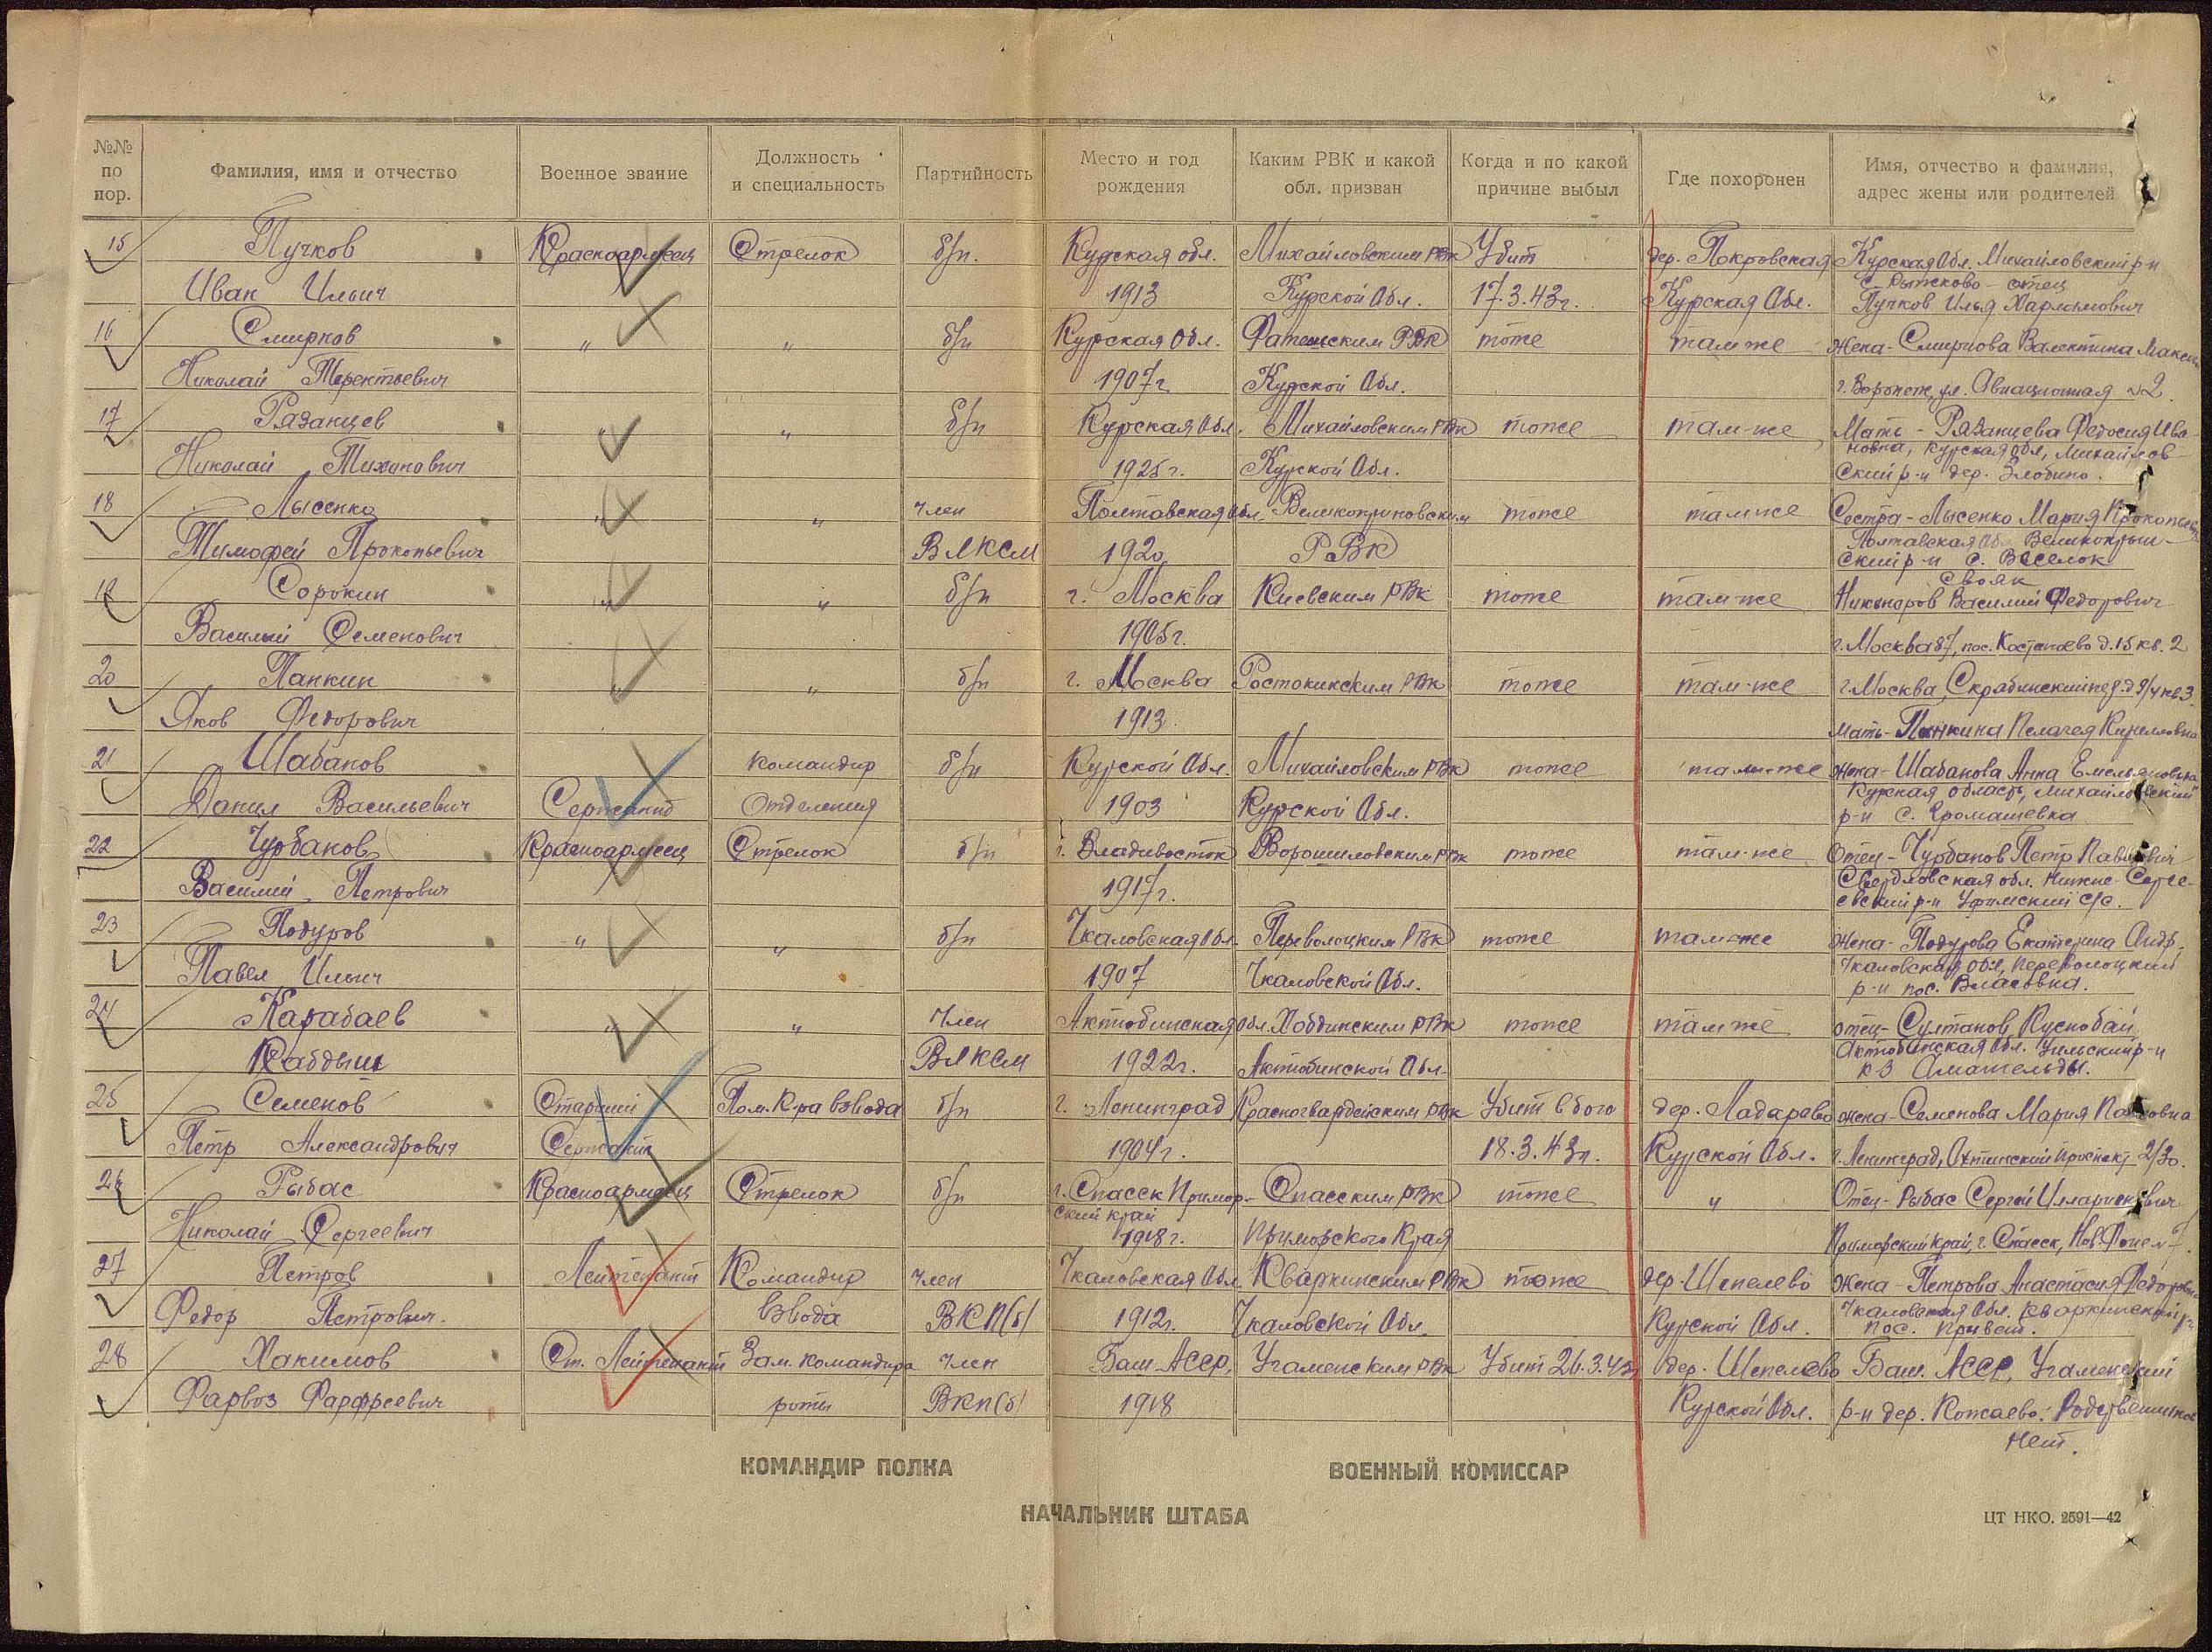 №№ по пор. Фамилия, имя и отчество Военное звание Должность и специальность Партийность Место и год рождения Каким РВК и какой обл. призван Когда и по какой причине выбыл Где похоронен Имя, отчество и фамилия, адрес жены или родителей
15 Пучков Красноармеец Стрелок б/п. Курская обл. Михайловским РВК Убит дер. Покровская Курская Обл. Михайловский р-н
с. Рытсково - отец
Иван Ильич 1913 Курской Обл. 17.3.43г. Курская Обл. Пучков Илья
16 Смирнов " " б/п Курская Обл. Фатежским РВК тоже там же жена - Смирнова Валентина
Николай Терентьевич 1907г. Курской Обл. г. Воронеж, ул. Авиационная №2.
17 Рязанцев " " б/п Курская Обл. Михайловским РВК тоже там-же Мать - Рязанцева Федосия Ива-
новна, Курская обл, Михайлов-
Николай Тихонович 1925г. Курской Обл. ский р-н дер. Злобино.
18 Лысенко " " член Полтавская обл. тоже там же Сестра - Лысенко Мария
Полтавская об.
Тимофей Прокопьевич ВЛКСМ 1920 РВК ский р-н с. Веселок
свояк
19 Сорокин " " б/п г. Москва Киевским РВК тоже там-же Никоноров Василий Федорович
Василий Семенович 1905г. г. Москва 87, пос. д. 15 кв. 2
20 Панкин " " б/п г. Москва Ростокинским РВК тоже там-же г. Москва
Яков Федорович 1913 Мать - Панкина Пелагея Кирилловна
21 Шабанов командир б/п Курской Обл. Михайловским РВК тоже там-же жена - Шабанова Анна Емельяновна
Курская область, Михайловский
Данил Васильевич Сержант Отделения 1903 Курской Обл. р-н с. Ромашевка
22 Чурбанов Красноармеец Стрелок б/п г. Владивосток Ворошиловским РВК тоже там-же Отец - Чурбанов Петр Павлович
Свердловская обл. Нижне-Серге-
Василий Петрович 1917г. евский р-н Уфимский с/с.
23 Подуров " " б/п Чкаловская Обл. Переволоцким РВК тоже там же Жена - Подурова Екатерина Андр.
Чкаловская обл, Переволоцкий
Павел Ильич 1907 Чкаловской Обл. р-н пос. Власовка.
24 Карабаев " " Член Актюбинская обл. Хобдинским РВК тоже там же отец - Султанов
Актюбинская Обл. Уильский р-н
Кабдыш ВЛКСМ 1922г. Актюбинской Обл. к-з Амангельды.
25 Семенов Старший Пом. К-ра взвода б/п г. Ленинград Красногвардейским РВК Убит в бою дер. Ладарево жена - Семенова Мария Павловна
Петр Александрович Сержант 1904г. 18.3.43г. Курской Обл. г. Ленинград, Охтинский проспект 2/30.
26 Рыбас Красноармеец Стрелок б/п г. Спасск Примор- Спасским РВК тоже " Отец - Рыбас Сергей Илларионович
ский край
Николай Сергеевич 1918г. Приморского Края Приморский край, г. Спасск,
27 Петров Лейтенант Командир член Чкаловская Обл. Кваркинским РВК тоже дер. Шепелево Жена - Петрова Анастасия Федоровна
Чкаловская Обл. Кваркинский р-н
Федор Петрович. взвода ВКП(б) 1912г. Чкаловской Обл. Курской Обл. пос. Привет.
28 Хакимов Ст. Лейтенант Зам. командира член Баш. АССР, Учаменским РВК Убит 26.3.43г. дер. Шепелево Баш. АССР, Учаменский
Фарвоз роты ВКП(б) 1918 Курской Обл. р-н дер. Кожаево. Родственников
нет.
КОМАНДИР ПОЛКА ВОЕННЫЙ КОМИССАР
НАЧАЛЬНИК ШТАБА
ЦТ НКО. 2591—42